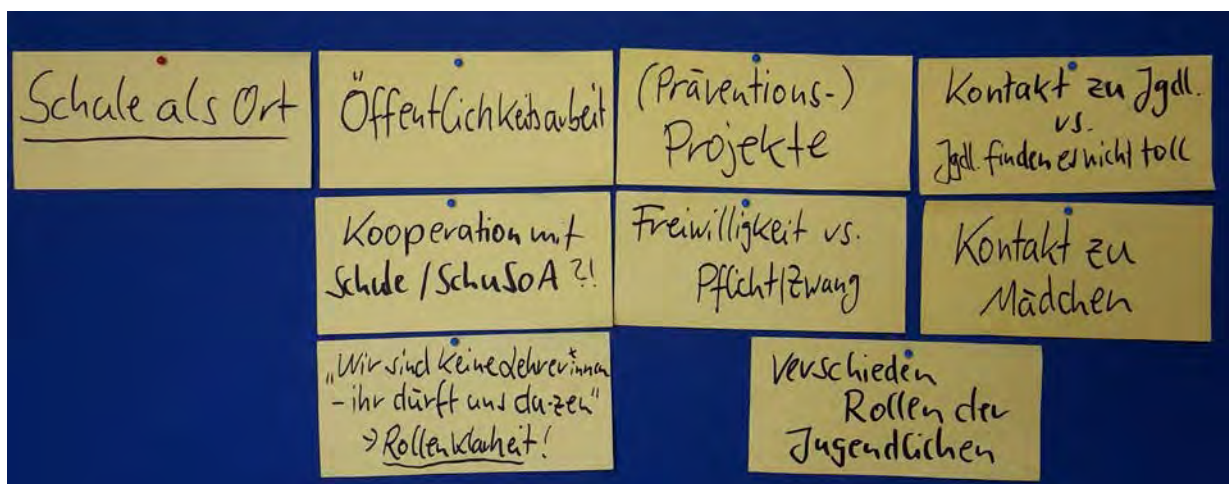 Schule als Ort
Öffentlichkeitsarbeit
(Präventions-)
Projekte
Kontakt zu Jgdl.
vs.
Jgdl. finden es nicht toll
Kooperation mit
Schule / SchuSoA ?!
Freiwilligkeit vs.
Pflicht/Zwang
Kontakt zu
Mädchen
„Wir sind keine Lehrer*innen
- ihr dürft uns du-zen"
→ Rollenklarheit!
Verschieden
Rollen der
Jugendlichen